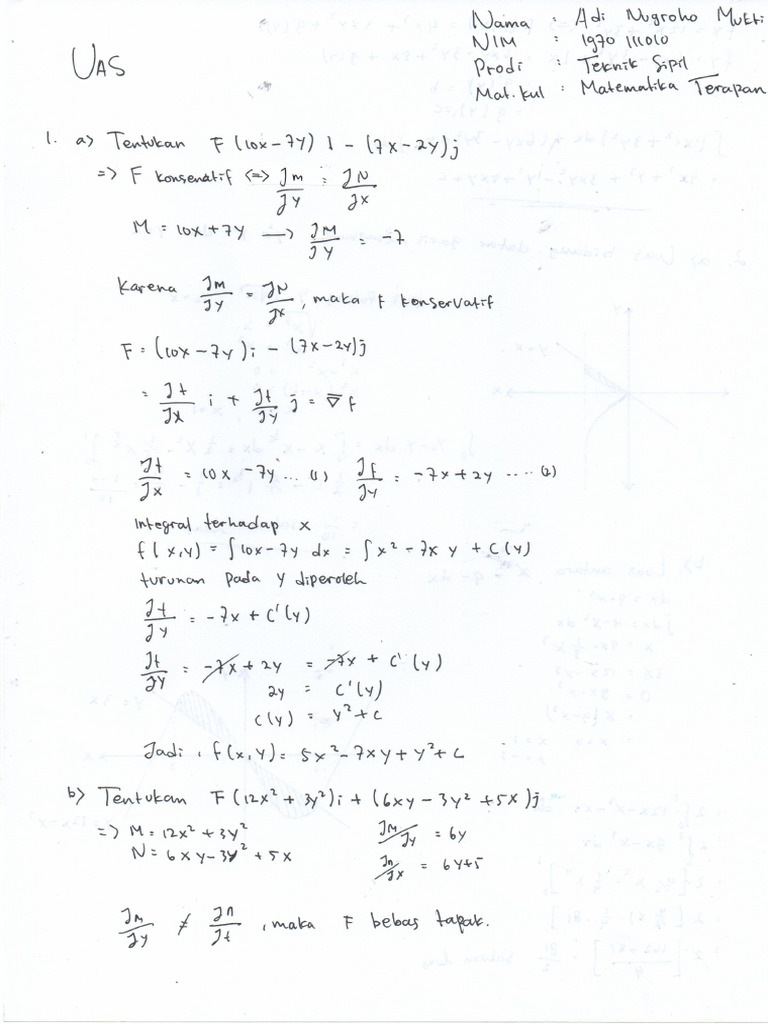 Nama : Adi Nugroho Mukti
NIM : 1970111010
Prodi : Teknik Sipil
Mat.kul : Matematika Terapan
UAS
1. a) Tentukan F (10x-7y) i - (7x-2y)j
=> F konsenatif <=> ∂M/∂y = ∂N/∂x
M = 10x+7y → ∂M/∂y = -7
Karena ∂M/∂y = ∂N/∂x, maka F konservatif
F = (10x-7y)i - (7x-2y)j
= ∂f/∂x i + ∂f/∂y j = ∇f
∂f/∂x = 10x -7y ... (1) ∂f/∂y = -7x+2y .... (2)
Integral terhadap x
f(x,y) = ∫10x-7y dx = ∫x² - 7x y + C(y)
turunan pada y diperoleh
∂f/∂y = -7x + C'(y)
∂f/∂y = -7x + 2y = -7x + C'(y)
2y = C'(y)
c(y) = y²+c
Jadi, f(x,y) = 5x²-7xy+y²+c
b) Tentukan F(12x²+3y²)i + (6xy-3y²+5x)j
=> M = 12x²+3y² ∂M/∂y = 6y
N = 6xy-3y²+5x ∂n/∂x = 6y+5
∂M/∂y ≠ ∂n/∂t, maka F bebas tapak.